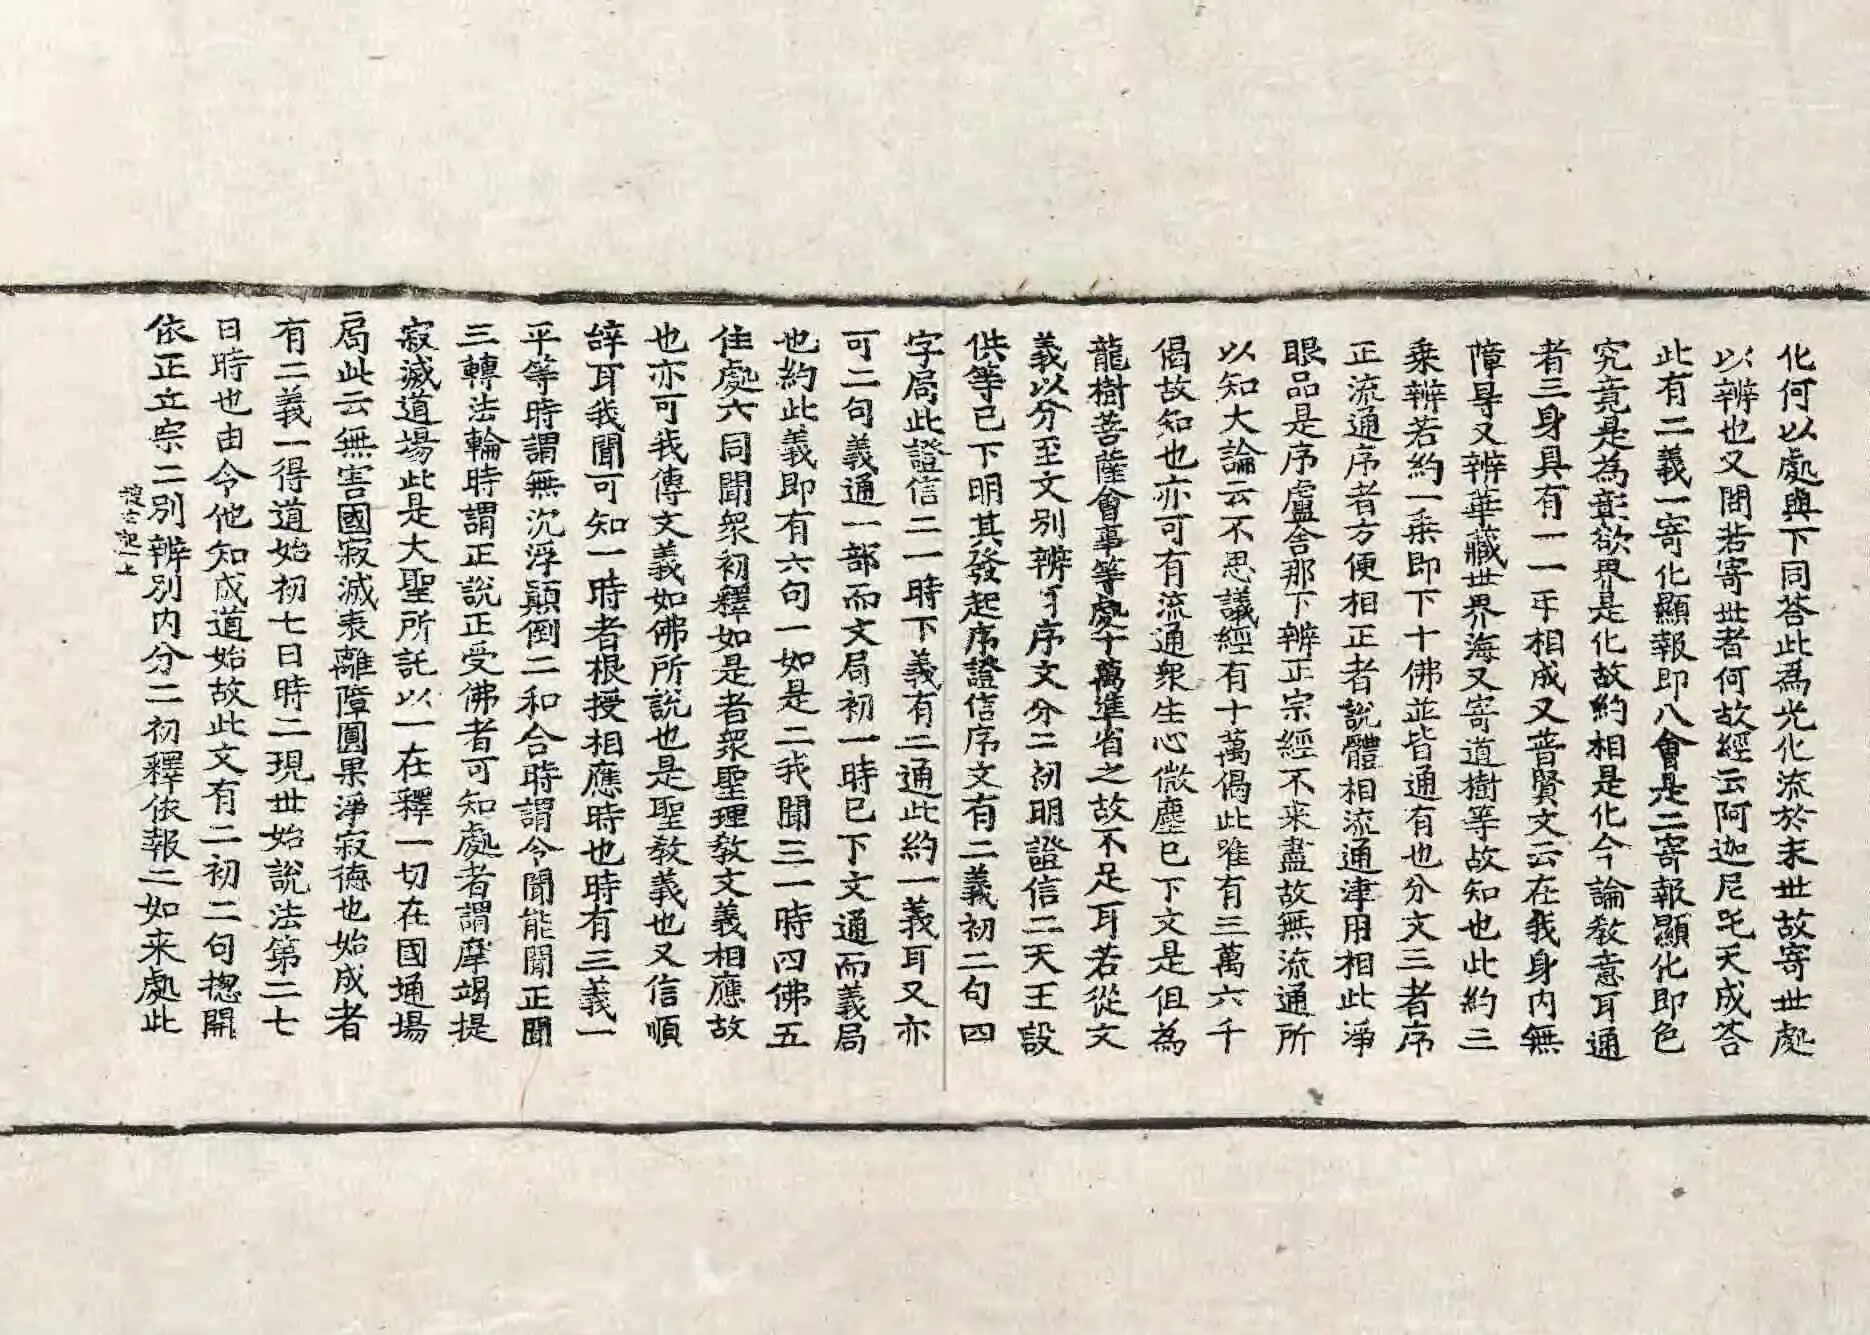 化何以處與下同荅此為光化流於末世故寄世處
以辨也又問若寄世者何故經云阿迦尼吒天成荅
此有二義一寄化顯報即八會是二寄報顯化即色
究竟是為彰欲界是化故約相是化今論教意耳通
者三身具有一一互相成又普賢文云在我身内無
障㝵又辨華藏世界海又寄道樹等故知也此約三
乗辨若約一乗即下十佛並皆通有也分文三者序
正流通序者方便相正者說體相流通津用相此淨
眼品是序盧舍那下辨正宗經不来盡故無流通所
以知大論云不思議經有十萬偈此唯有三萬六千
偈故知也亦可有流通衆生心微塵已下文是但為
龍樹菩薩會事等處十萬準省之故不足耳若從文
義以分至文別辨序文分二初明證信二天王設
供等已下明其發起序證信序文有二義初二句四
字局此證信二一時下義有二通此約一義耳又亦
可二句義通一部而文局初一時已下文通而義局
也約此義即有六句一如是二我聞三一時四佛五
住處六同聞衆初釋如是者衆聖理教文義相應故
也亦可我傳文義如佛所說也是聖教義也又信順
辞耳我聞可知一時者根授相應時也時有三義一
平等時謂無沉浮顛倒二和合時謂令聞能聞正聞
三轉法輪時謂正說正受佛者可知處者謂摩竭提
寂滅道場此是大聖所託以一在釋一切在國通場
局此云無害國寂滅表離障圓果淨寂德也始成者
有二義一得道始初七日時二現世始說法第二七
日時也由令他知成道始故此文有二初二句揔開
依正立宗二別辨別内分二初釋依報二如来處此